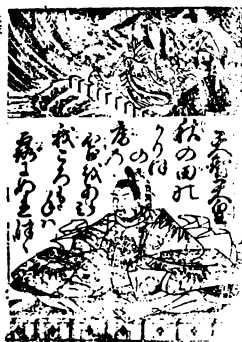 天智天皇
秋の田の
かりほ
の
庵の
苫をあらみ
我ころも手は
露にぬれつゝ